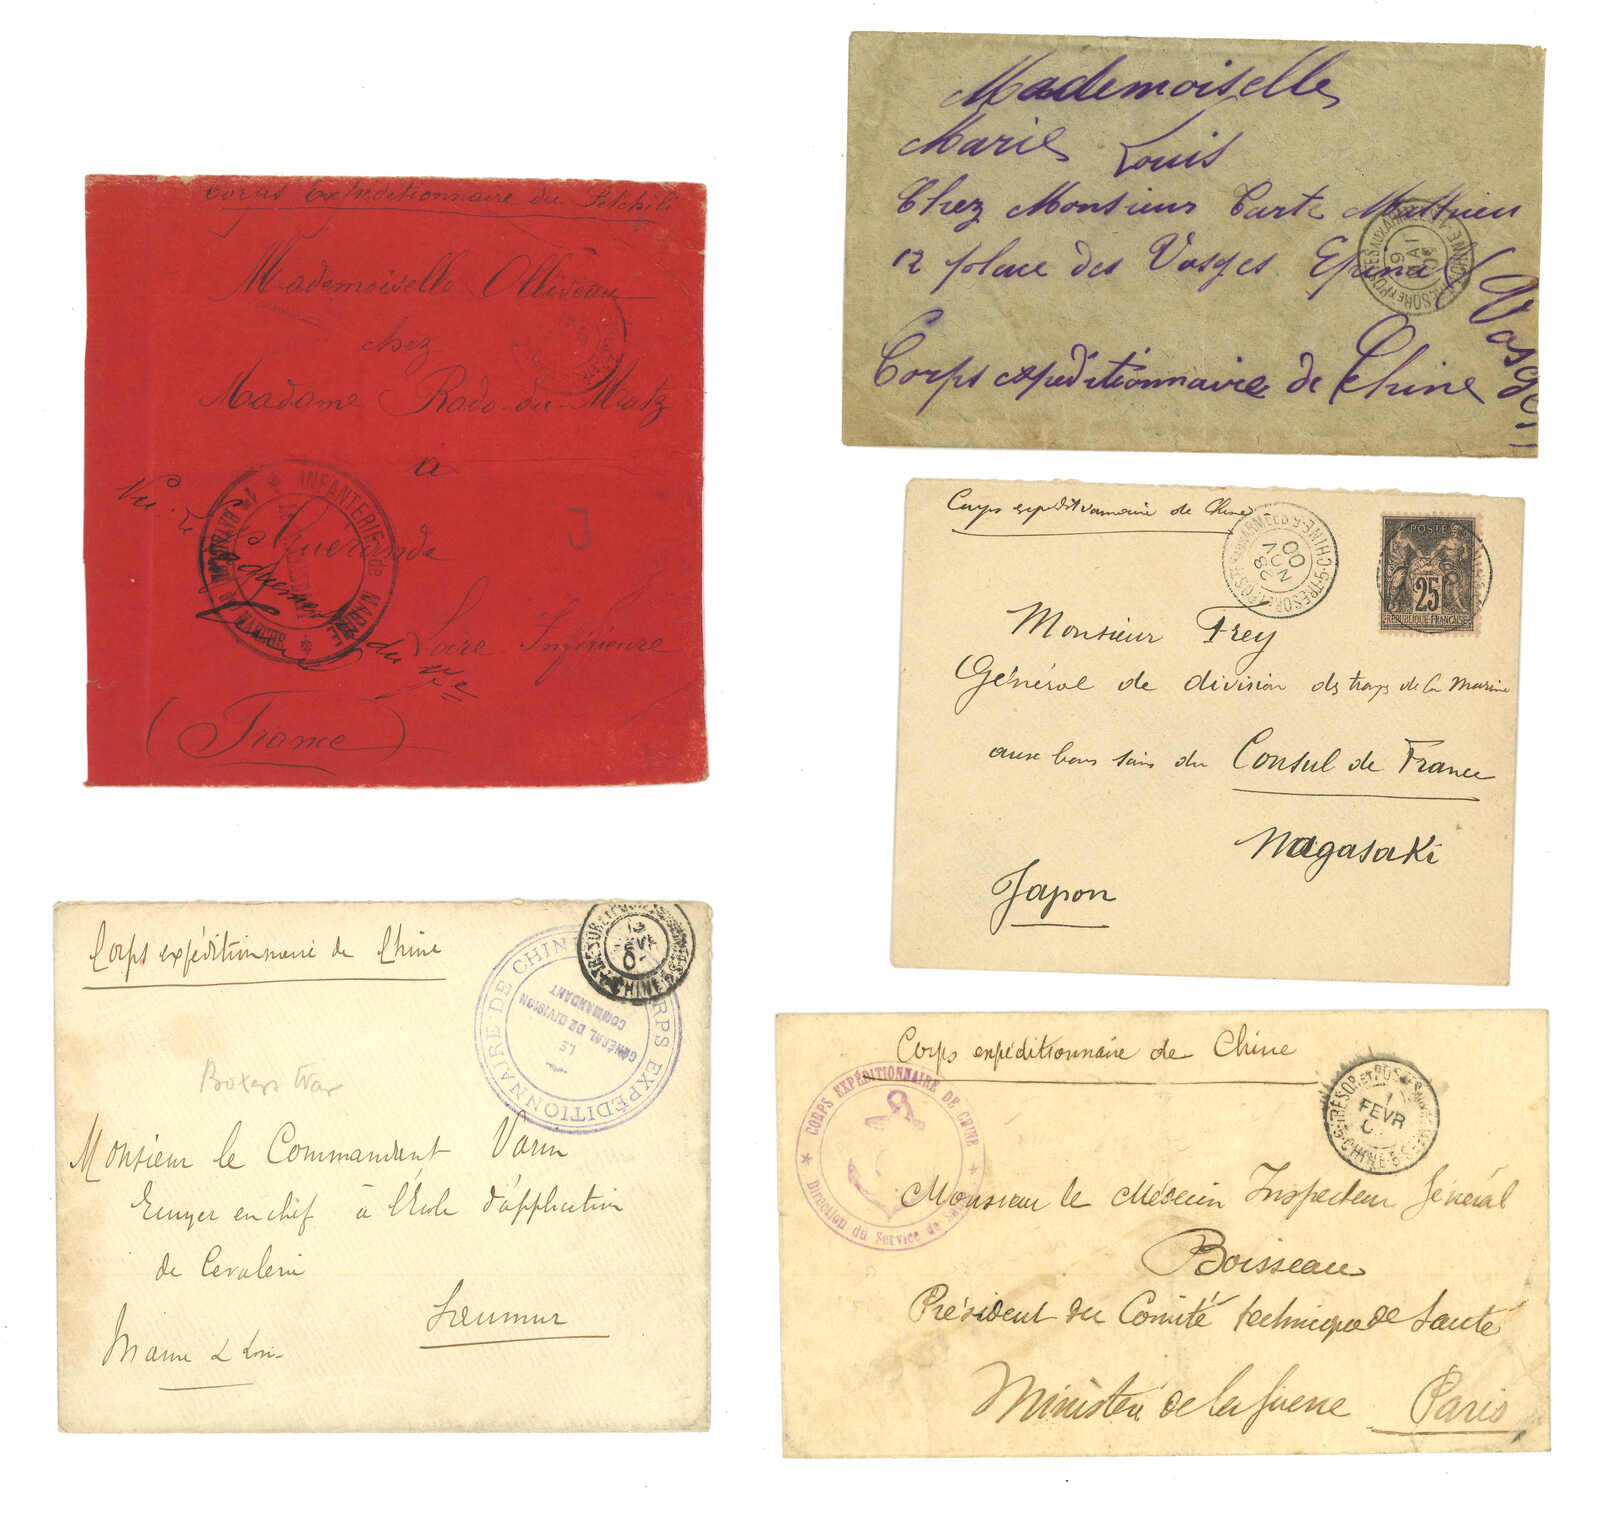 Corps Expéditionnaire du Petchili
Mademoiselle Olliveau
chez
Madame Rado-du-Matz
à
Guérande
Loire Inférieure
(France)
Vu. Le
du 1er
INFANTERIE de MARINE
Mademoiselle
Marie Louis
Chez Monsieur Carte Mathieu
12 place des Vosges Epinal
(Vosges)
Corps expéditionnaire de Chine
TRESOR ET POSTES AUX ARMEES
CHINE
Corps expéditionnaire de Chine
TRESOR ET POSTES AUX ARMEES
CHINE
28
NOV
00
POSTES
25
REPUBLIQUE FRANÇAISE
Monsieur Frey
Général de division des troupes de la Marine
aux bons soins du Consul de France
Nagasaki
Japon
Corps expéditionnaire de Chine
CORPS EXPÉDITIONNAIRE DE CHINE
LE
GÉNÉRAL DE DIVISION
COMMANDANT
CHINE
Boxers War
Monsieur le Commandant Varin
Ecuyer en chef à l'Ecole d'application
de Cavalerie
Saumur
Maine & Loire
Corps expéditionnaire de Chine
CORPS EXPÉDITIONNAIRE DE CHINE
Direction du Service de Santé
TRÉSOR ET POSTES AUX ARMEES
1
FEVR
CHINE
Monsieur le Médecin Inspecteur Général
Boisseau
Président du Comité technique de Santé
Ministère de la Guerre Paris